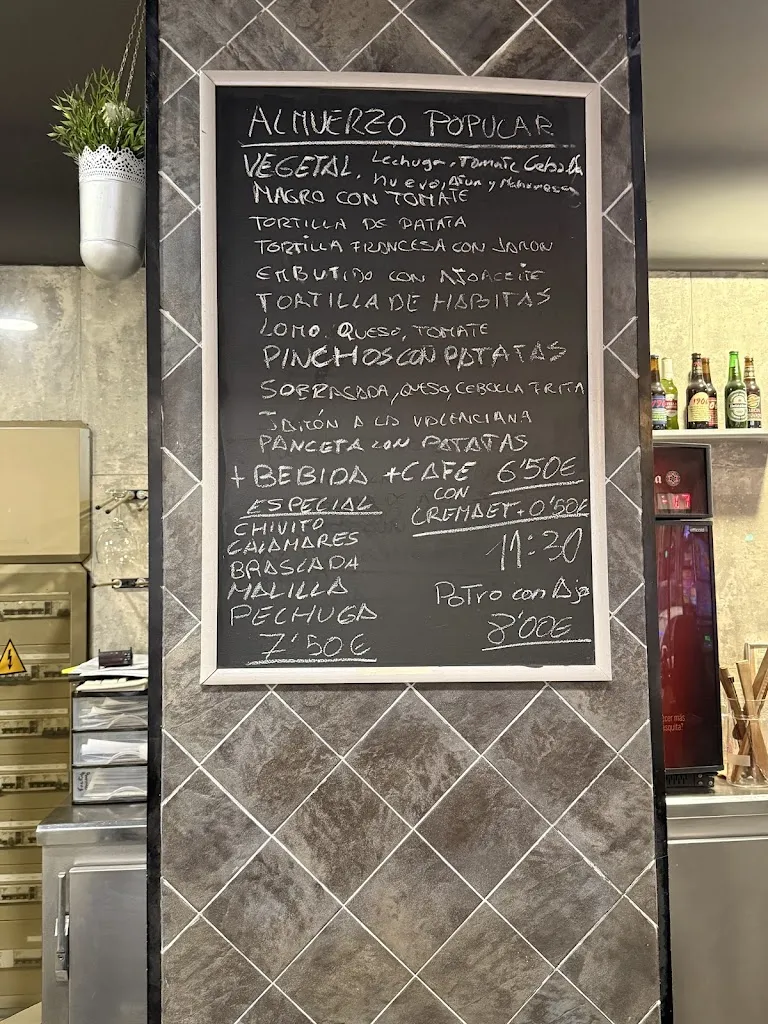 ALMUERZO POPULAR
VEGETAL, Lechuga, Tomate Cebolla
huevo, Atun y Mahonesa
MAGRO CON TOMATE
TORTILLA DE PATATA
TORTILLA FRANCESA CON JAMON
EMBUTIDO CON AJOACEITE
TORTILLA DE HABITAS
LOMO, QUESO, TOMATE
PINCHOS CON PATATAS
SOBRASADA, QUESO, CEBOLLA FRITA
JAMÓN A LA VALENCIANA
PANCETA CON PATATAS
+ BEBIDA + CAFE 6'50€
CON
CREMAET + 0'50€
ESPECIAL
CHIVITO
CALAMARES
BRASCADA
MALILLA
PECHUGA
7'50€
11:30
Potro con Ajo
8'00€
1906